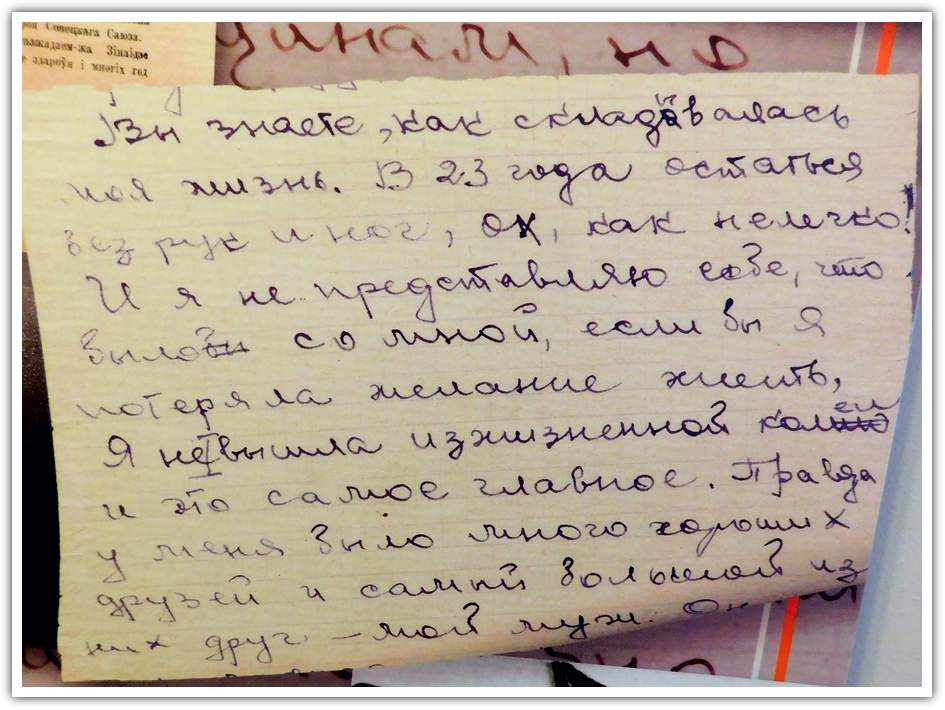 Савецкага Саюза.
Зінаідзе
здароўя і многіх год
, но
Вы знаете, как складывалась
моя жизнь. В 23 года остаться
без рук и ног, ох, как нелегко!
И я не представляю себе, что
было бы со мной, если бы я
потеряла желание жить,
Я не вышла из жизненной колеи
и это самое главное. Правда
у меня было много хороших
друзей и самый большой из
них друг – мой муж. Он